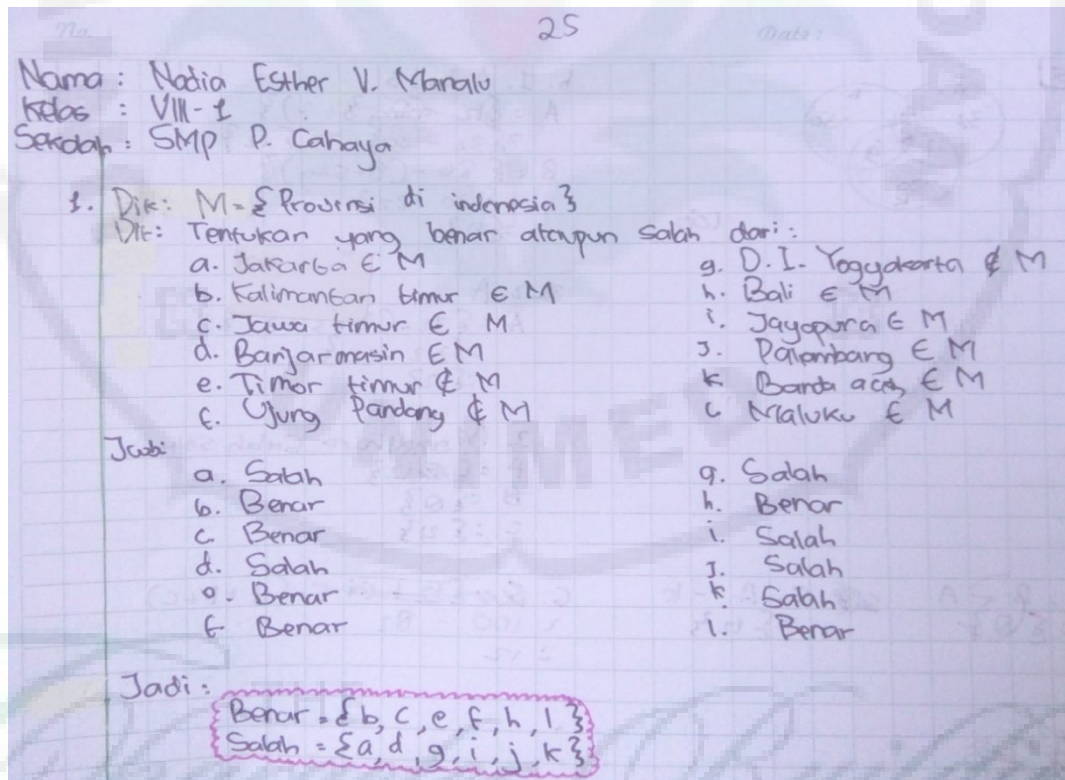 No.
25
Date:
Nama : Nadia Esther V. Manalu
Kelas : VIII-1
Sekolah : SMP P. Cahaya
1. Dik: M = {Provinsi di indonesia}
Dit: Tentukan yang benar ataupun Salah dari:
a. Jakarta ∈ M
b. Kalimantan timur ∈ M
c. Jawa timur ∈ M
d. Banjarmasin ∈ M
e. Timor timur ∉ M
f. Ujung Pandang ∉ M
g. D.I. Yogyakarta ∉ M
h. Bali ∈ M
i. Jayapura ∈ M
J. Palembang ∈ M
k Banda aceh ∈ M
l Maluku ∈ M
Jwb:
a. Salah
b. Benar
c. Benar
d. Salah
e. Benar
f. Benar
g. Salah
h. Benar
i. Salah
J. Salah
k. Salah
i. Benar
Jadi :
Benar = {b, c, e, f, h, l}
Salah = {a, d, g, i, j, k}
UNIMED